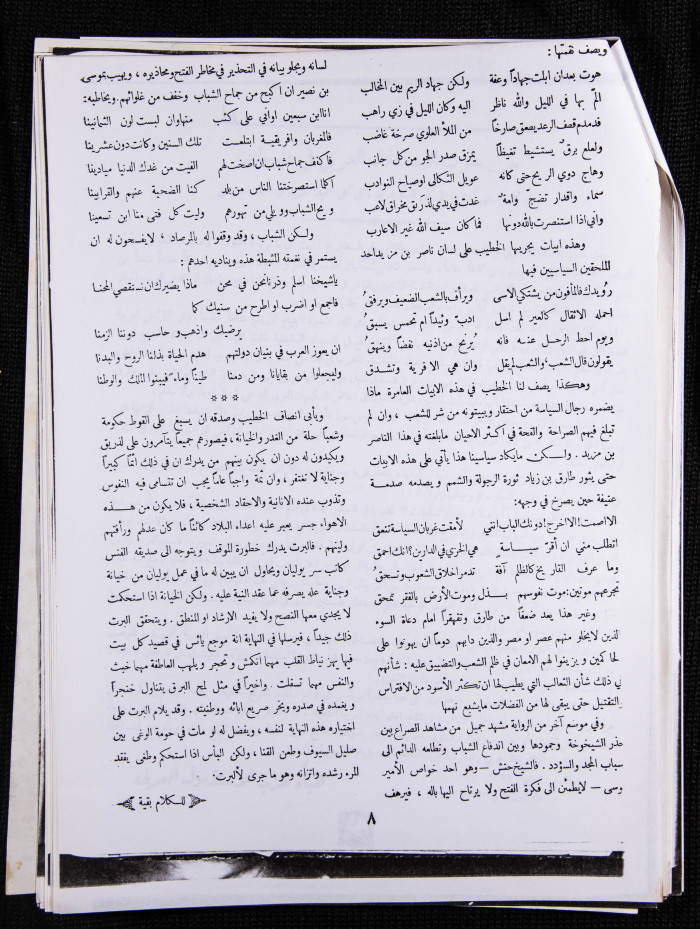 ويصف نقمتها :
هوت بعدان ابلت جهاداً وعفة ولكن جهاد الريم بين المخالب
المّ بها في الليل والله ناظر اليه وكان الليل في زي راهب
فدمدم قصف الرعد يصعق صارخاً من الملأ العلوي صرخة غاضب
ولعلع برق يستشيط تغيظاً يمزق صدر الجو من كل جانب
وهاج دوي الريح حتى كانه عويل الثكالى او صياح النوادب
سماء واقدار تضج وامة غدت في يدي لذريق مخراق لاعب
وأني اذا استنصرت بالله دونها فما كان سيف الله غير الاعارب
وهذه ابيات يجريها الخطيب على لسان ناصر بن مزيد احد
الملحقين السياسيين فيها
رُويدك فالمأفون من يشتكي الاسى ويرأف بالشعب الضعيف ويرفقُ
احمله الاثقال كالعير لم اسل ادبّ وئيداً ام تحمس يسبقُ
ويوم احط الرحل عنه فانه يُرنح من اذنيه نفضاً وينهقُ
يقولون قال الشعب، والشعب لم يقل وان هي الا فرية وتشدق
وهكذا يصف لنا الخطيب في هذه الابيات العامرة ماذا
يضمره رجال السياسة من احتقار ويبيتونه من شر للشعب ، وان لم
تبلغ فيهم الصراحة والقحة في اكثر الاحيان مابلغته في هذا الناصر
بن مزيد . ولكن مايكاد سياسينا هذا يأتي على هذه الابيات
حتى يثور طارق بن زياد ثورة الرجولة والشمم و يصدمه صدمة
عنيفة حين يصرخ في وجهه:
الا اصمت! الا اخرج! دونك الباب انني لأمقت غربان السياسة تنعق
اتطلب مني ان أقرّ سياسة هي الخزي في الدارين؟ انك احمق
وما عرف التاريخ كالظلم آفة تدمر اخلاق الشعوب وتسحقُ
تجرعهم موتين: موت نفوسهم بذل وموت الأرض بالفقر تمحق
وغير هذا يعد ضعفاً من طارق وتقهقراً امام دعاة السوء
الذين لايخلو منهم عصر او مصر والذين دابهم دوماً ان يهونوا على
الحاكمين و يزينوا لهم الامعان في ظلم الشعب والتضييق عليه : شأنهم
في ذلك شأن الثعالب التي يطيب لها ان تكثر الأسود من الافتراس
والتقتيل حتى يبقى لها من الفضلات مايشبع نهمها
وفي موضع آخر من الرواية مشهد جميل من مشاهد الصراع بين
حذر الشيخوخة وجمودها وبين اندفاع الشباب وتطلعه الدائم الى
سباب المجد والسؤدد . فالشيخ حنش – وهو احد خواص الأمير
وسى – لايطمئن الى فكرة الفتح ولا يرتاح اليها باله ، فيرهف
لسانه ويجلو بيانه في التحذير في مخاطر الفتح ومحاذيره ، ويهيب بموسى
بن نصير ان اكبح من جماح الشباب وخفف من غلوائهم. ويخاطبه:
انا ابن سبعين اواني على كثب منها وان لبست لون الثمانينا
فالمغربان وافريقية ابتلعت تلك السنين وكانت دون عشرينا
فاكفف جماح شباب ان اصخت لهم الفيت من غدك الدنيا ميادينا
أكلما استصرختنا الناس من بلد كنا الضحية عنهم والقرابينا
ويح الشباب وويلي من تهورهم وليت كل فتى منا ابن تسعينا
ولكن الشباب ، وقد وقفوا له بالمرصاد ، لايفسحون له ان
يستمر في نغمته المثبطة هذه ويناديه احدهم :
ياشيخنا اسلم وذرنا نحن في محن ماذا يضيرك ان نستقصي المحنا
فاجمع او اضرب او اطرح من سنيك كما
يرضيك واذهب وحاسب دوننا الزمنا
ان يعوز العرب في بنيان دولتهم هدم الحياة بذلنا الروح والبدنا
وليجعلوا من بقايانا ومن دمنا طيناً وماء فيبنوا الملك والوطنا
* * *
ويأبى انصاف الخطيب وصدقه ان يسبغ على القوط حكومة
وشعباً حلة من الغدر والخيانة ، فيصورهم جميعاً يتآمرون على لذريق
ويكيدون له دون ان يكون بينهم من يدرك ان في ذلك اثماً كبيراً
وجناية لا تغتفر ، وان ثمة واجباً عاماً يجب ان تتسامى فيه النفوس
وتذوب عنده الانانية والاحقاد الشخصية ، فلا يكون من هذه
الاهواء جسر يعبر عليه اعداء البلاد كائناً ما كان عدلهم ورأفتهم
ولينهم . فالبرت يدرك خطورة الموقف ويتوجه الى صديقه الفنس
كاتب سر يوليان ويحاول ان يبين له ما في عمل يوليان من خيانة
وجناية عله يصرفه عما عقد النية عليه . ولكن الخيانة اذا استحكمت
لا يجدي معها النصح ولا يفيد الارشاد او المنطق . ويتحقق البرت
ذلك جيداً ، فيرسلها في النهاية انة موجع يائس في قصيد كل بيت
فيها يهز نياط القلب مهما انكمش و تحجر و يلهب العاطفة مهما خبث
والنفس مهما تسفلت . واخيراً في مثل لمح البرق يتناول خنجراً
و يغمده في صدره ويخر صريع ابائه ووطنيته . وقد يلام البرت على
اختياره هذه النهاية لنفسه ، ويفضل له لو مات في حومة الوغى بين
صليل السيوف وطعن القنا ، ولكن اليأس اذا استحكم وطغى يفقد
المرء رشده واتزانه وهو ما جرى لألبرت.
للكلام بقية
٨